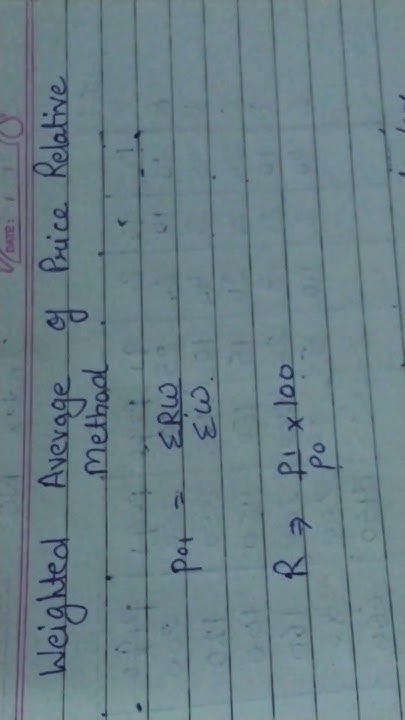 DATE:
Weighted Average of Price Relative
Method
P01 = ΣRW
ΣW.
R ⇒ P1 × 100
P0